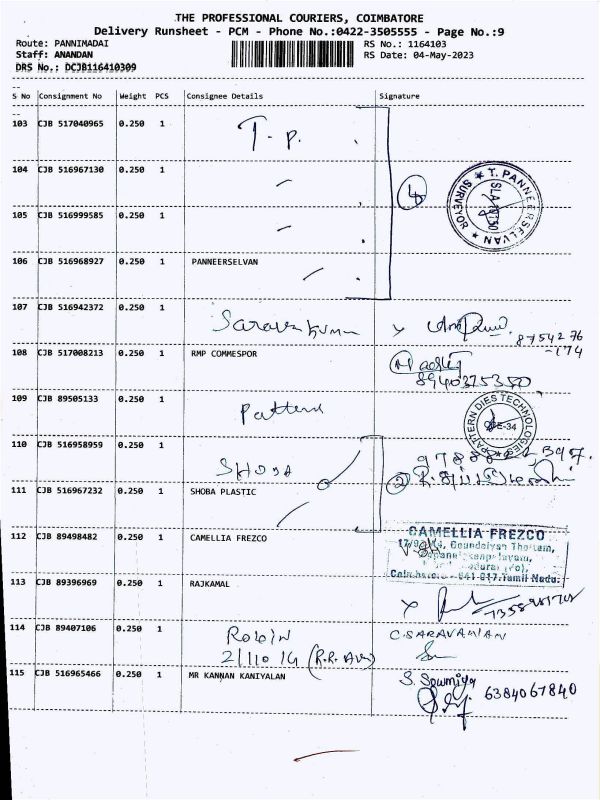 THE PROFESSIONAL COURIERS, COIMBATORE
Delivery Runsheet - PCM - Phone No.:0422-3505555 - Page No.:9
Route: PANNIMADAI
RS No.: 1164103
Staff: ANANDAN
RS Date: 04-May-2023
DRS No.: DCJB116410309
S No Consignment No Weight PCS Consignee Details Signature
103 CJB 517040965 0.250 1 T. P.
104 CJB 516967130 0.250 1
4
T. PANNEERSELVAN
SURVEYOR
105 CJB 516999585 0.250 1
106 CJB 516968927 0.250 1 PANNEERSELVAN
107 CJB 516942372 0.250 1 Saravankumar
87542 76
-174
108 CJB 517008213 0.250 1 RMP COMMESPOR
8940325350
109 CJB 89505133 0.250 1 Pattern
PATTERN DIES TECHNOLOGIES
110 CJB 516958959 0.250 1 SHOBA
2
111 CJB 516967232 0.250 1 SHOBA PLASTIC
112 CJB 89498482 0.250 1 CAMELLIA FREZCO
CAMELLIA FREZCO
Goundaiyan Thottam,
641 017.Tamil Nadu.
113 CJB 89396969 0.250 1 RAJKAMAL
114 CJB 89407106 0.250 1 ROBIN C.SARAVANAN
2/110 14 (R.R. Ave)
115 CJB 516965466 0.250 1 MR KANNAN KANIYALAN S. Sowmiya
6384067840